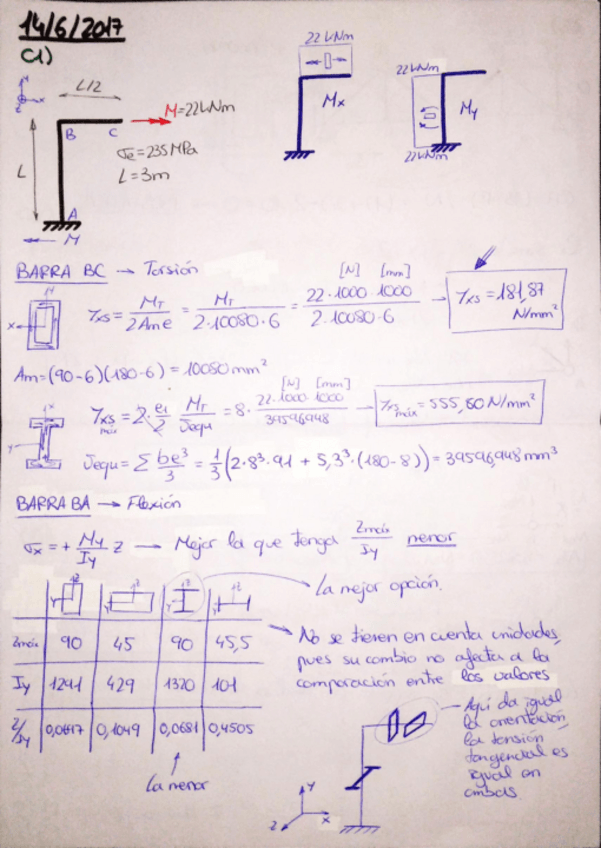 14/6/2017
C1)
22 kNm
Mx
22 kNm
My
22 kNm
L/2
M=22 kNm
B
C
σe=235 MPa
L
L=3m
A
M
BARRA BC → Torsión
[N] [mm]
τxs = MT / 2Am e = MT / 2·10080·6 = 22·1000·1000 / 2·10080·6 → τxs = 181,87 N/mm²
Am=(90-6)(180-6) = 10080 mm²
[N] [mm]
τxs máx = 2·e1/2 MT/Jequ = 8· 22·1000·1000 / 39596,948 → τxs máx = 555,60 N/mm²
Jequ = Σ be³/3 = 1/3 (2·8³·91 + 5,3³·(180-8)) = 39596,948 mm³
BARRA BA → Flexión
σx = + My/Iy z → Mejor la que tenga zmáx/Iy menor
La mejor opción.
zmáx 90 45 90 45,5
Iy 1291 429 1320 101
z/Iy 0,0697 0,1049 0,0681 0,4505
La menor
No se tienen en cuenta unidades,
pues su cambio no afecta a la
comparación entre los valores
Aquí da igual
la orientación,
la tensión
tangencial es
igual en
ambas.
Y
X
Z